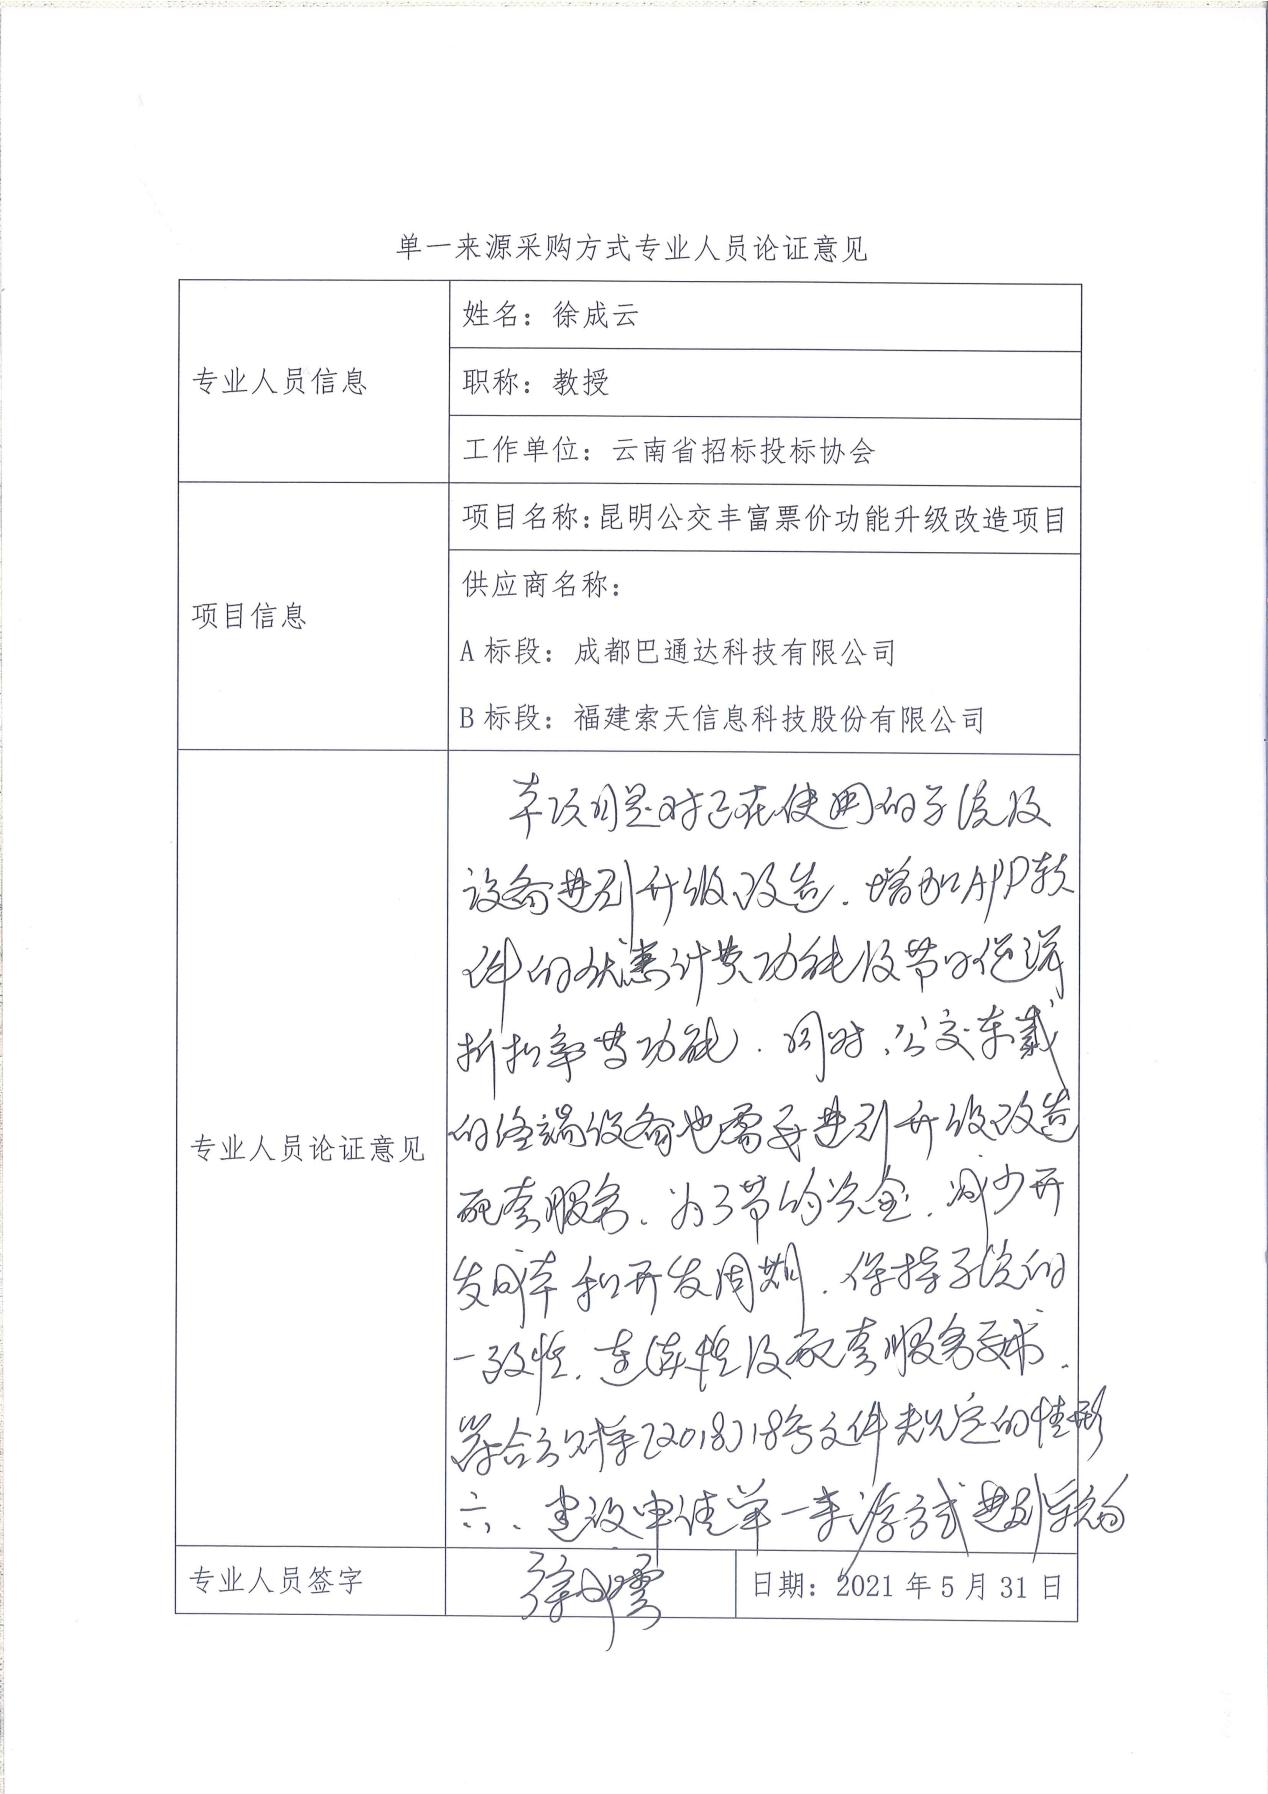 单一来源采购方式专业人员论证意见
专业人员信息
姓名：徐成云
职称：教授
工作单位：云南省招标投标协会
项目信息
项目名称：昆明公交丰富票价功能升级改造项目
供应商名称：
A 标段：成都巴通达科技有限公司
B 标段：福建索天信息科技股份有限公司
专业人员论证意见
本项目是对已在使用的系统及
设备进行升级改造．增加APP软
件的优惠计费功能及节日促销
折扣率等功能．同时，公交车载
的终端设备也需要进行升级改造
配套服务．为了节约资金．减少开
发成本和开发周期．保持系统的
一致性．连续性及配套服务要求．
符合云财采〔2018〕18号文件规定的情形
六．建议申请单一来源方式进行采购
专业人员签字
徐成雲
日期：2021 年 5 月 31 日